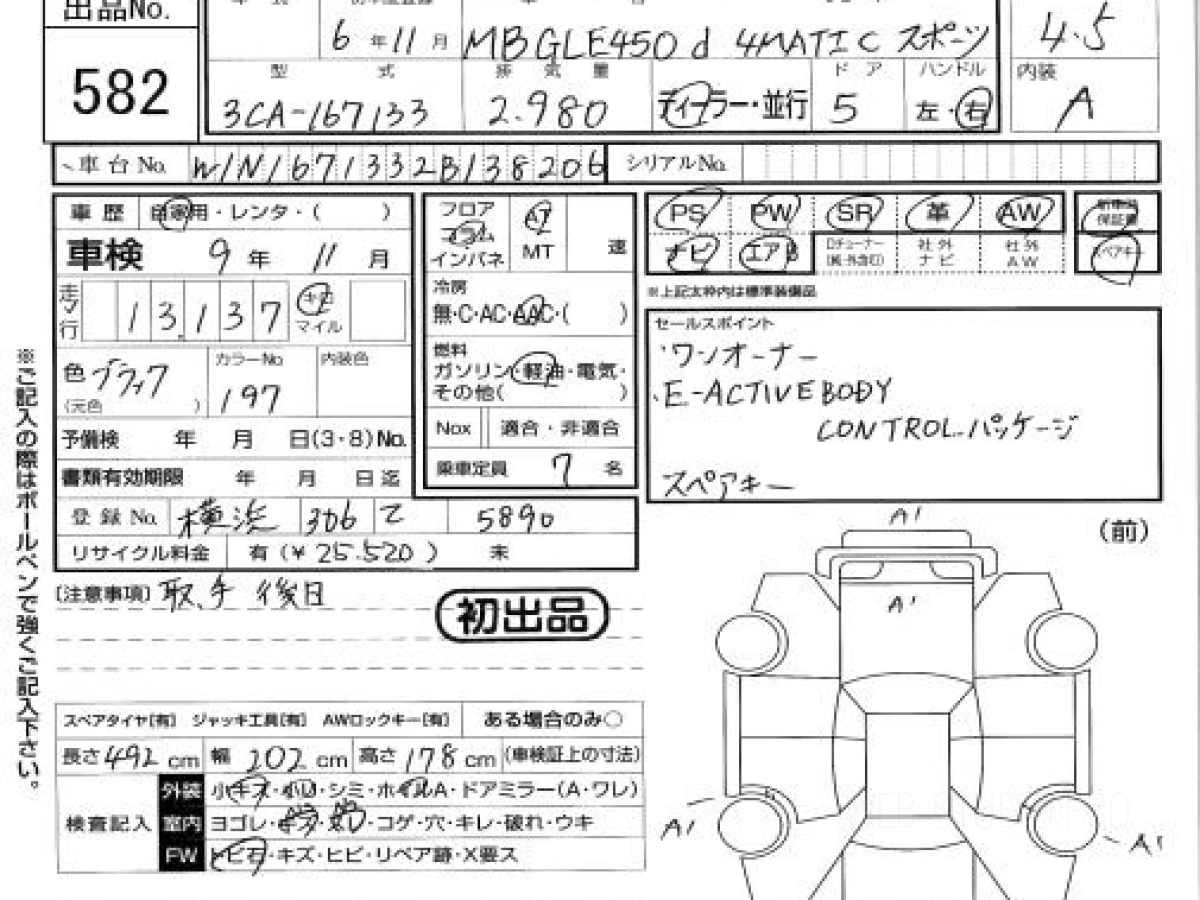 出品No.
582
6 年 11 月 MB GLE450 d 4MATIC スポーツ 4.5
型 式 排 気 量 ド ア ハンドル 内装
3CA-167133 2.980 ディーラー・並行 5 左・右 A
車台No. W1N1671332B138206 シリアルNo.
車歴 自家用・レンタ・( )
車検 9 年 11 月
走行 13,137 キロ マイル
色 ブラック カラーNo 197 内装色
(元色 )
予備検 年 月 日(3・8)No.
書類有効期限 年 月 日迄
登録No. 横浜 306 て 5890
リサイクル料金 有(¥25.520) 未
フロア コラム インパネ
AT
MT 速
冷房
無・C・AC・AAC・( )
燃料
ガソリン・軽油・電気・
その他( )
Nox 適合・非適合
乗車定員 7 名
PS PW SR 革 AW 新車時保証書
ナビ エアB Dチューナー 社外ナビ 社外AW スペアキー
※上記太枠内は標準装備品
セールスポイント
・ワンオーナー
・E-ACTIVE BODY
CONTROL パッケージ
スペアキー
[注意事項] 取、手 後日
初出品
※ご記入の際はボールペンで強くご記入下さい。
スペアタイヤ[有] ジャッキ工具[有] AWロックキー[有] ある場合のみ○
長さ492cm 幅 202cm 高さ178cm (車検証上の寸法)
検査記入
外装 小キズ・小凹・シミ・ホイルA・ドアミラー(A・ワレ)
室内 ヨゴレ・キズ・スレ・コゲ・穴・キレ・破れ・ウキ
FW トビ石・キズ・ヒビ・リペア跡・X要ス
A1
(前)
A1
A1
A1